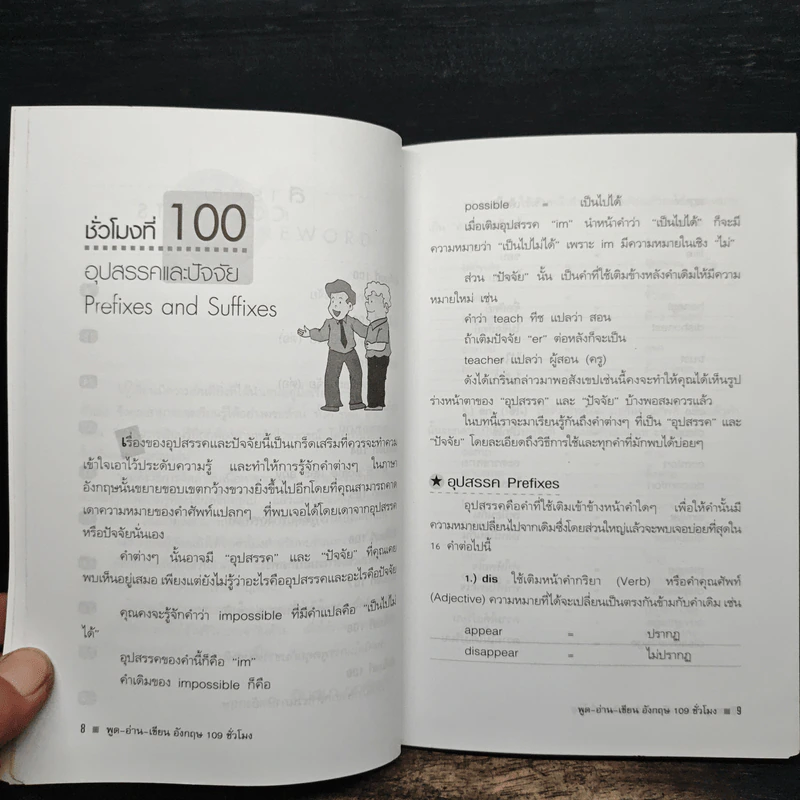 ชั่วโมงที่ 100
อุปสรรคและปัจจัย
Prefixes and Suffixes
เรื่องของอุปสรรคและปัจจัยนี้เป็นเกร็ดเสริมที่ควรจะทำความ
เข้าใจเอาไว้ประดับความรู้ และทำให้การรู้จักคำต่างๆ ในภาษา
อังกฤษนั้นขยายขอบเขตกว้างขวางยิ่งขึ้นไปอีกโดยที่คุณสามารถคาด
เดาความหมายของคำศัพท์แปลกๆ ที่พบเจอได้โดยเดาจากอุปสรรค
หรือปัจจัยนั่นเอง
คำต่างๆ นั้นอาจมี "อุปสรรค" และ "ปัจจัย" ที่คุณเคย
พบเห็นอยู่เสมอ เพียงแต่ยังไม่รู้ว่าอะไรคืออุปสรรคและอะไรคือปัจจัย
คุณคงจะรู้จักคำว่า impossible ที่มีคำแปลคือ "เป็นไปไม่
ได้"
อุปสรรคของคำนี้ก็คือ "im"
คำเดิมของ impossible ก็คือ
8 ■ พูด-อ่าน-เขียน อังกฤษ 109 ชั่วโมง
possible = เป็นไปได้
เมื่อเติมอุปสรรค "im" นำหน้าคำว่า "เป็นไปได้" ก็จะมี
ความหมายว่า "เป็นไปไม่ได้" เพราะ im มีความหมายในเชิง "ไม่"
ส่วน "ปัจจัย" นั้น เป็นคำที่ใช้เติมข้างหลังคำเดิมให้มีความ
หมายใหม่ เช่น
คำว่า teach ทีช แปลว่า สอน
ถ้าเติมปัจจัย "er" ต่อหลังก็จะเป็น
teacher แปลว่า ผู้สอน (ครู)
ดังได้เกริ่นกล่าวมาพอสังเขปเช่นนี้คงจะทำให้คุณได้เห็นรูป
ร่างหน้าตาของ "อุปสรรค" และ "ปัจจัย" บ้างพอสมควรแล้ว
ในบทนี้เราจะมาเรียนรู้กันถึงคำต่างๆ ที่เป็น "อุปสรรค" และ
"ปัจจัย" โดยละเอียดถึงวิธีการใช้และทุกคำที่มักพบได้บ่อยๆ
★ อุปสรรค Prefixes
อุปสรรคคือคำที่ใช้เติมเข้าข้างหน้าคำใดๆ เพื่อให้คำนั้นมี
ความหมายเปลี่ยนไปจากเดิมซึ่งโดยส่วนใหญ่แล้วจะพบเจอบ่อยที่สุดใน
16 คำต่อไปนี้
1.) dis ใช้เติมหน้าคำกริยา (Verb) หรือคำคุณศัพท์
(Adjective) ความหมายที่ได้จะเปลี่ยนเป็นตรงกันข้ามกับคำเดิม เช่น
appear = ปรากฏ
disappear = ไม่ปรากฏ
พูด-อ่าน-เขียน อังกฤษ 109 ชั่วโมง ■ 9